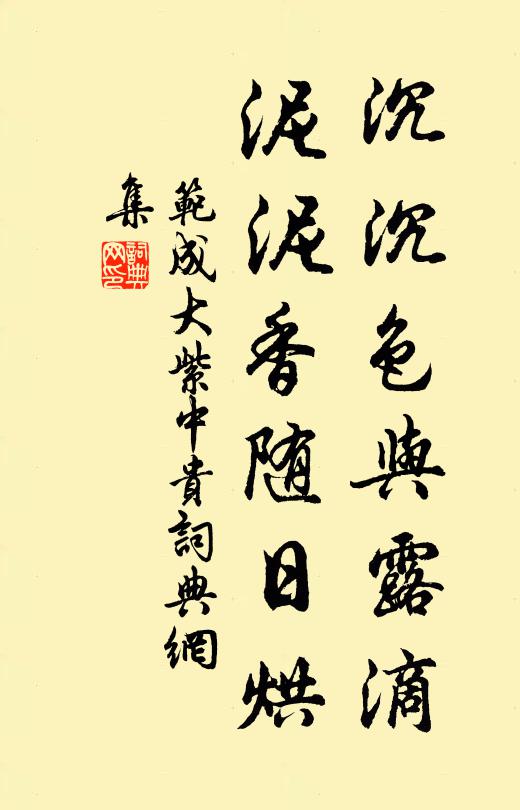 沉沉色與露滴
泥泥香随日烘
範成大紫中貴詞典網
集
詞典
网印